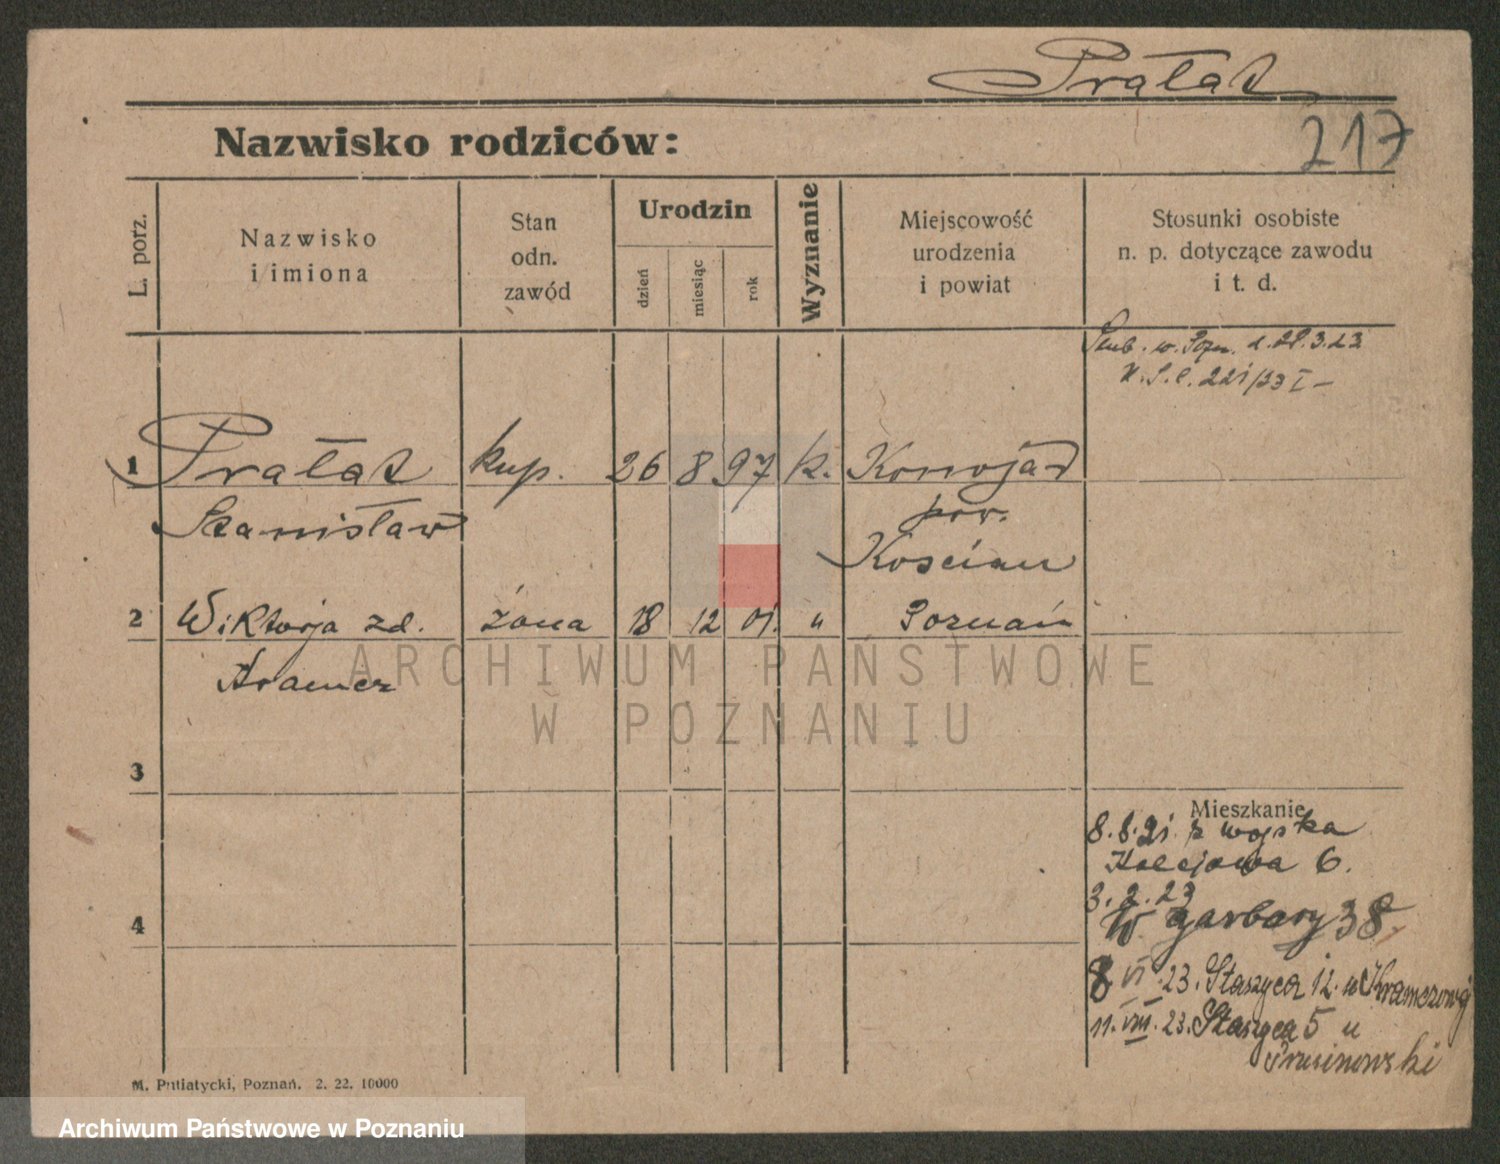 Prałat
217
Nazwisko rodziców:
L. porz.
Nazwisko
i imiona
Stan
odn.
zawód
Urodzin
dzień
miesiąc
rok
Wyznanie
Miejscowość
urodzenia
i powiat
Stosunki osobiste
n. p. dotyczące zawodu
i t. d.
Ślub. w Pozn. d. 28.3.23
221/23 I
1 Prałat kup. 26 8 97 k. Konojad
Stanisław pow.
Kościan
2 Wiktorja zd. żona 18 12 01. " Poznań
Kramer
3
4
Mieszkanie
8.8.21. z wojska
Kolejowa 6.
3.2.23
W. garbary 38.
8 VI 23. Staszyca 12. u Kramerowej
11. VIII. 23. Staszyca 5 u
Prusinowski
M. Putiatycki, Poznań. 2. 22. 10000
ARCHIWUM PAŃSTWOWE
W POZNANIU
Archiwum Państwowe w Poznaniu